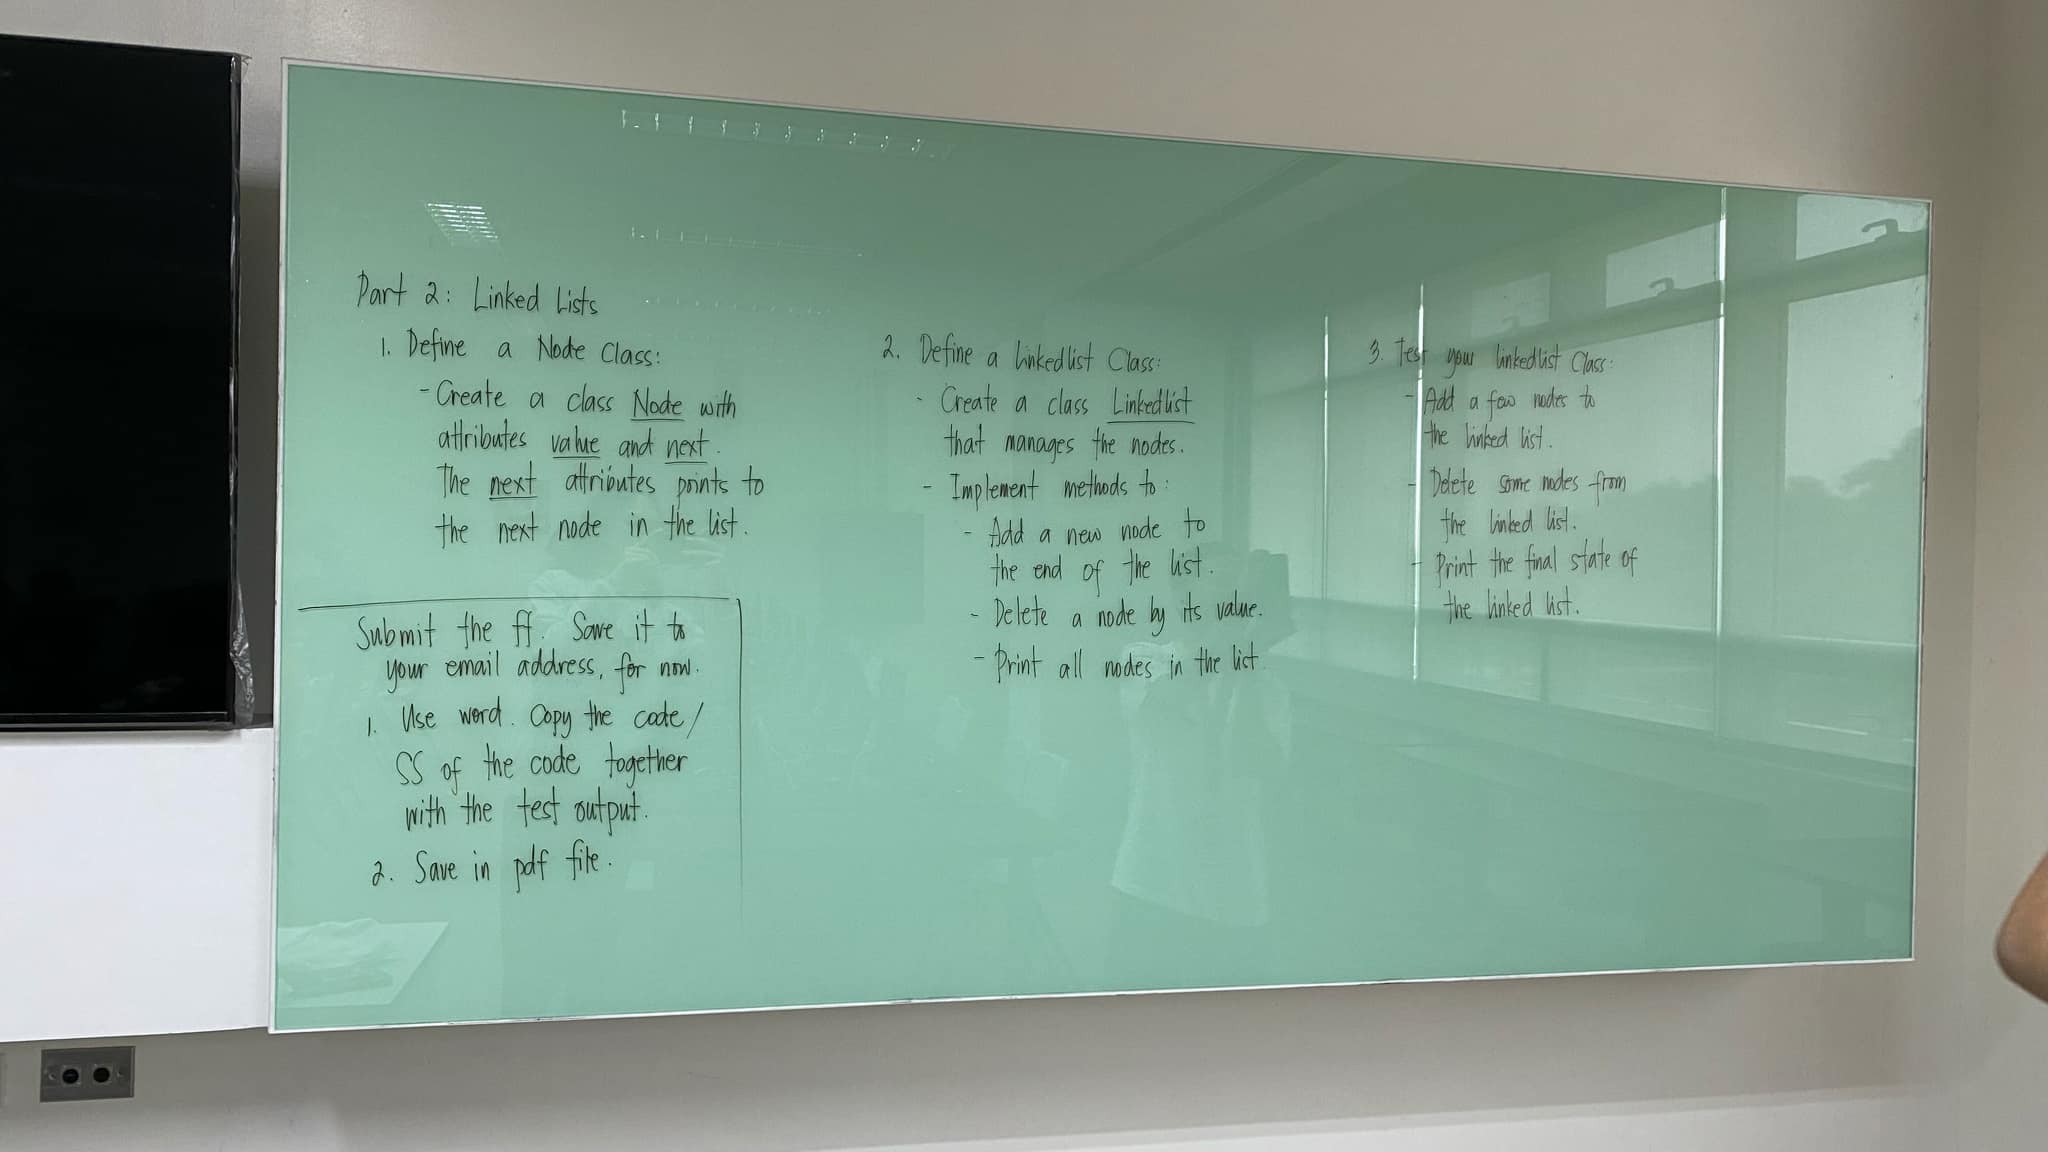 Part 2: Linked Lists
1. Define a Node Class:
- Create a class Node with
attributes value and next.
The next attributes points to
the next node in the list.
Submit the ff. Save it to
your email address, for now.
1. Use word. Copy the code/
SS of the code together
with the test output.
2. Save in pdf file.
2. Define a Linkedlist Class:
- Create a class Linkedlist
that manages the nodes.
- Implement methods to:
- Add a new node to
the end of the list.
- Delete a node by its value.
- Print all nodes in the list
3. Test your linkedlist Class:
- Add a few nodes to
the linked list.
- Delete some nodes from
the linked list.
- Print the final state of
the linked list.